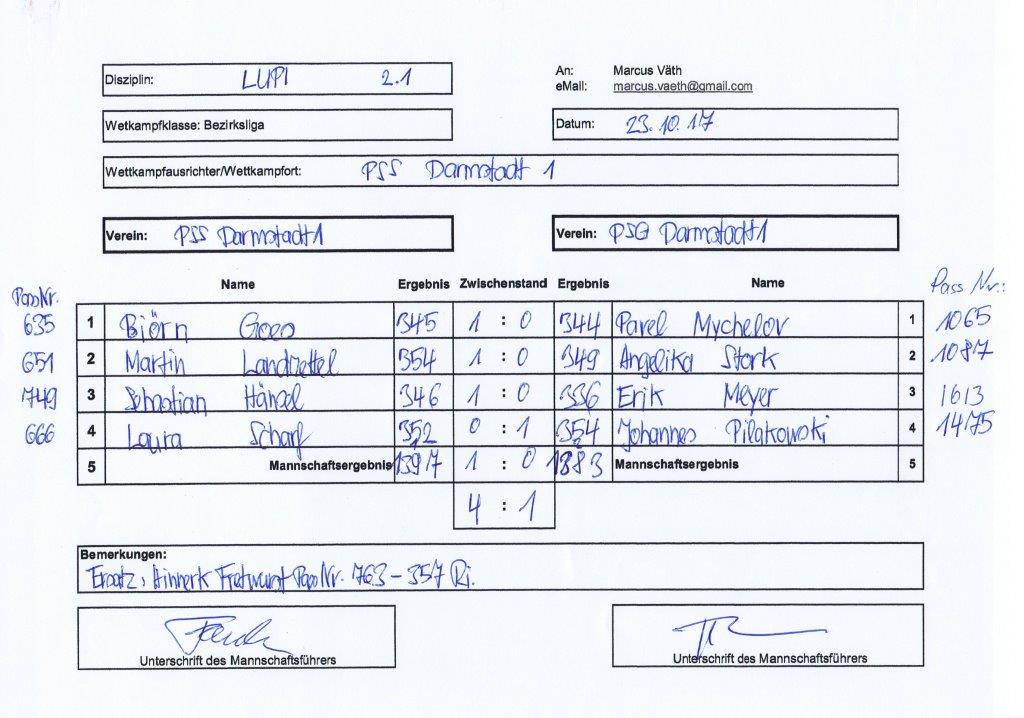 Disziplin: LUPI 2.1
An: Marcus Väth
eMail: marcus.vaeth@gmail.com
Wetkampfklasse: Bezirksliga
Datum: 23.10.17
Wettkampfausrichter/Wettkampfort: PSS Darmstadt 1
Verein: PSS Darmstadt 1
Verein: PSG Darmstadt 1
Name Ergebnis Zwischenstand Ergebnis Name
Pass Nr. Pass Nr.:
635 1 Björn Goes 345 1 : 0 344 Pavel Mychelov 1 1065
651 2 Martin Landzettel 354 1 : 0 349 Angelika Stork 2 1087
749 3 Sebastian Hänsel 346 1 : 0 336 Erik Meyer 3 1613
666 4 Laura Scharf 352 0 : 1 354 Johannes Pilakowski 4 1475
5 Mannschaftsergebnis 1397 1 : 0 1383 Mannschaftsergebnis 5
4 : 1
Bemerkungen:
Ersatz: Hinnerk Fretwurst Pass Nr. 763 - 357 Ri.
Unterschrift des Mannschaftsführers
Unterschrift des Mannschaftsführers